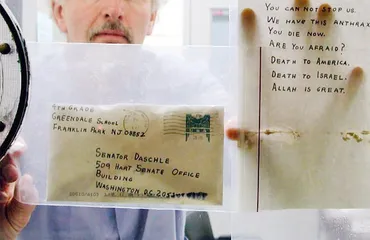 4TH GRADE
GREENDALE SCHOOL
FRANKLIN PARK NJ 08852
SENATOR DASCHLE
509 HART SENATE OFFICE
BUILDING
WASHINGTON D.C. 2051
YOU CAN NOT STOP US.
WE HAVE THIS ANTHRAX
YOU DIE NOW.
ARE YOU AFRAID?
DEATH TO AMERICA.
DEATH TO ISRAEL.
ALLAH IS GREAT.